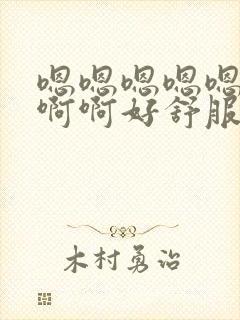 嗯嗯嗯嗯嗯
啊啊好舒服
木村勇治